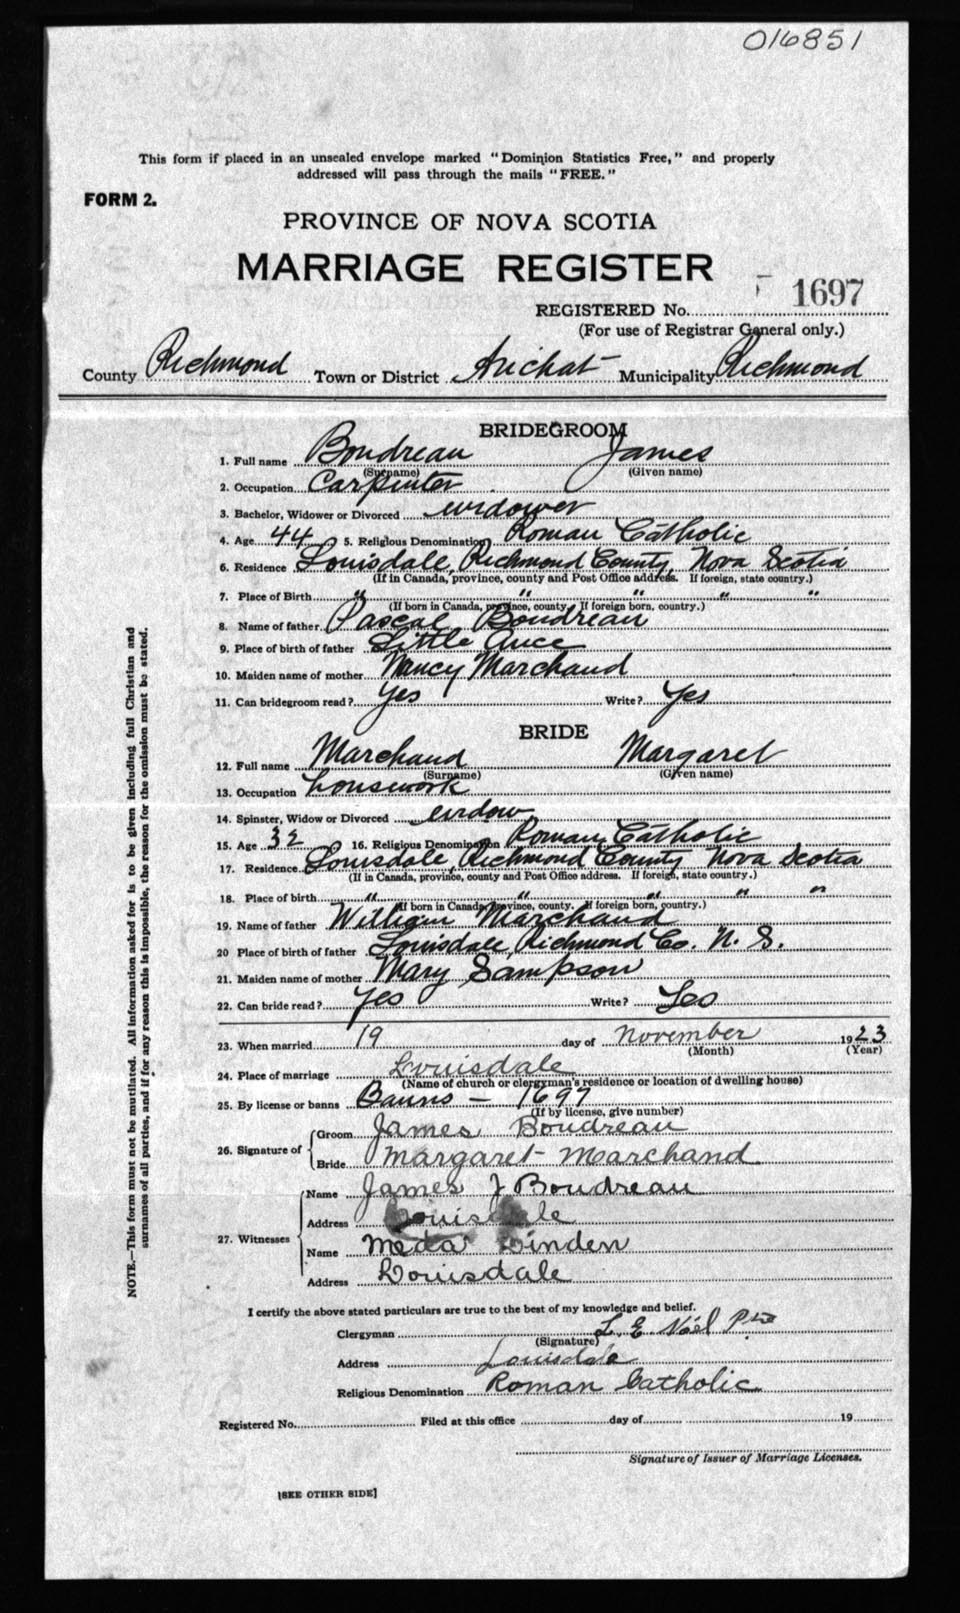 016851
This form if placed in an unsealed envelope marked "Dominion Statistics Free," and properly
addressed will pass through the mails "FREE."
FORM 2.
PROVINCE OF NOVA SCOTIA
MARRIAGE REGISTER
REGISTERED No. 1697
(For use of Registrar General only.)
County Richmond Town or District Arichat Municipality Richmond
BRIDEGROOM
1. Full name Boudreau James
(Surname) (Given name)
2. Occupation Carpinter
3. Bachelor, Widower or Divorced widower
4. Age 44 5. Religious Denomination Roman Catholic
6. Residence Louisdale, Richmond County, Nova Scotia
(If in Canada, province, county and Post Office address. If foreign, state country.)
7. Place of Birth " " " " "
(If born in Canada, province, county. If foreign born, country.)
8. Name of father Pascal Boudreau
9. Place of birth of father Little Ance
10. Maiden name of mother Nancy Marchand
11. Can bridegroom read? Yes Write? Yes
BRIDE
12. Full name Marchand Margaret
(Surname) (Given name)
13. Occupation housework
14. Spinster, Widow or Divorced widow
15. Age 32 16. Religious Denomination Roman Catholic
17. Residence Louisdale, Richmond County Nova Scotia
(If in Canada, province, county and Post Office address. If foreign, state country.)
18. Place of birth " " " " "
(If born in Canada, province, county. If foreign born, country.)
19. Name of father William Marchand
20 Place of birth of father Louisdale, Richmond Co. N. S.
21. Maiden name of mother Mary Sampson
22. Can bride read? Yes Write? Yes
23. When married 19 day of November 1923
(Month) (Year)
24. Place of marriage Louisdale
(Name of church or clergyman's residence or location of dwelling house)
25. By license or banns Banns – 1697
(If by license, give number)
26. Signature of Groom James Boudreau
Bride Margaret Marchand
27. Witnesses Name James J Boudreau
Address Louisdale
Name Meda Linden
Address Louisdale
I certify the above stated particulars are true to the best of my knowledge and belief.
Clergyman L. E. Noël
(Signature)
Address Louisdale
Religious Denomination Roman Catholic
Registered No. Filed at this office day of 19
Signature of Issuer of Marriage Licenses.
[SEE OTHER SIDE]
NOTE.—This form must not be mutilated. All information asked for is to be given including full Christian and
surnames of all parties, and if for any reason this is impossible, the reason for the omission must be stated.